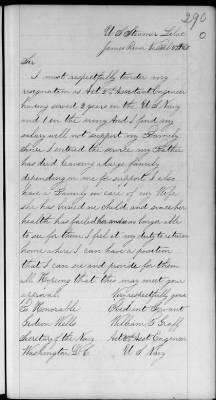 290
0
U S Steamer Lilac
James River Va Feb
Sir
I most respectfully tender my
resignation as Act 2d Assistant Engineer
having served 2 years in the U S Navy
and 1 in the army And I find my
salary will not support my Family
Since I entered the service my Father
has died leaving a large family
depending on me for support I also
have a Family in care of my Wife
she has buried one Child and since her
health has failed her and is no longer able
to see for them I feel it my duty to return
home where I can have a position
that I can see and provide for them
all Hoping that this may meet your
approval Very respectfully your
To Honorable Obedient Servant
Gideon Wells William E Graff
Secretary of the Navy Act 2d Asst Engineer
Washington D C U S Navy